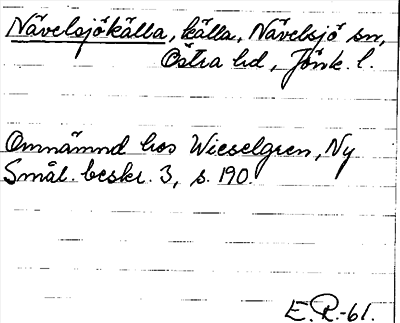 Nävelsjökälla, källa, Nävelsjö sn,
Östra hd, Jönk. l.
Omnämnd hos Wieselgren, Ny
Smål. beskr. 3, s. 190.
E.R.-61.